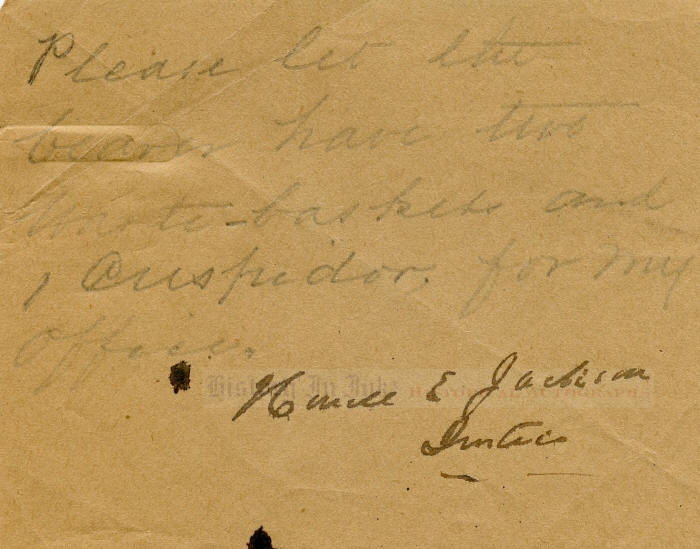 Please let the
bearer have two
Waste-baskets and
1 Cuspidor, for my
office.
History In Ink
Howell E Jackson
Justice